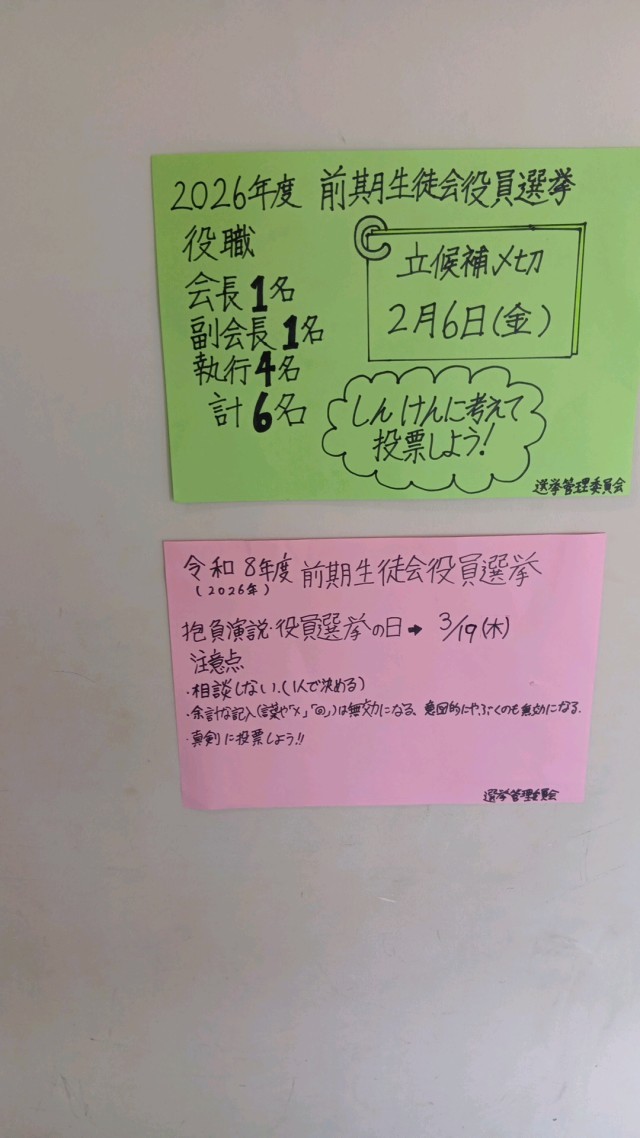 2026年度 前期生徒会役員選挙
役職
会長1名
副会長1名
執行4名
計6名
立候補〆切
2月6日(金)
しんけんに考えて
投票しよう!
選挙管理委員会
令和8年度 前期生徒会役員選挙
(2026年)
抱負演説・役員選挙の日➡ 3/19(木)
注意点
・相談しない.(1人で決める)
・余計な記入(言葉や「×」「◎」)は無効になる、意図的にやぶくのも無効になる.
・真剣に投票しよう!!
選挙管理委員会